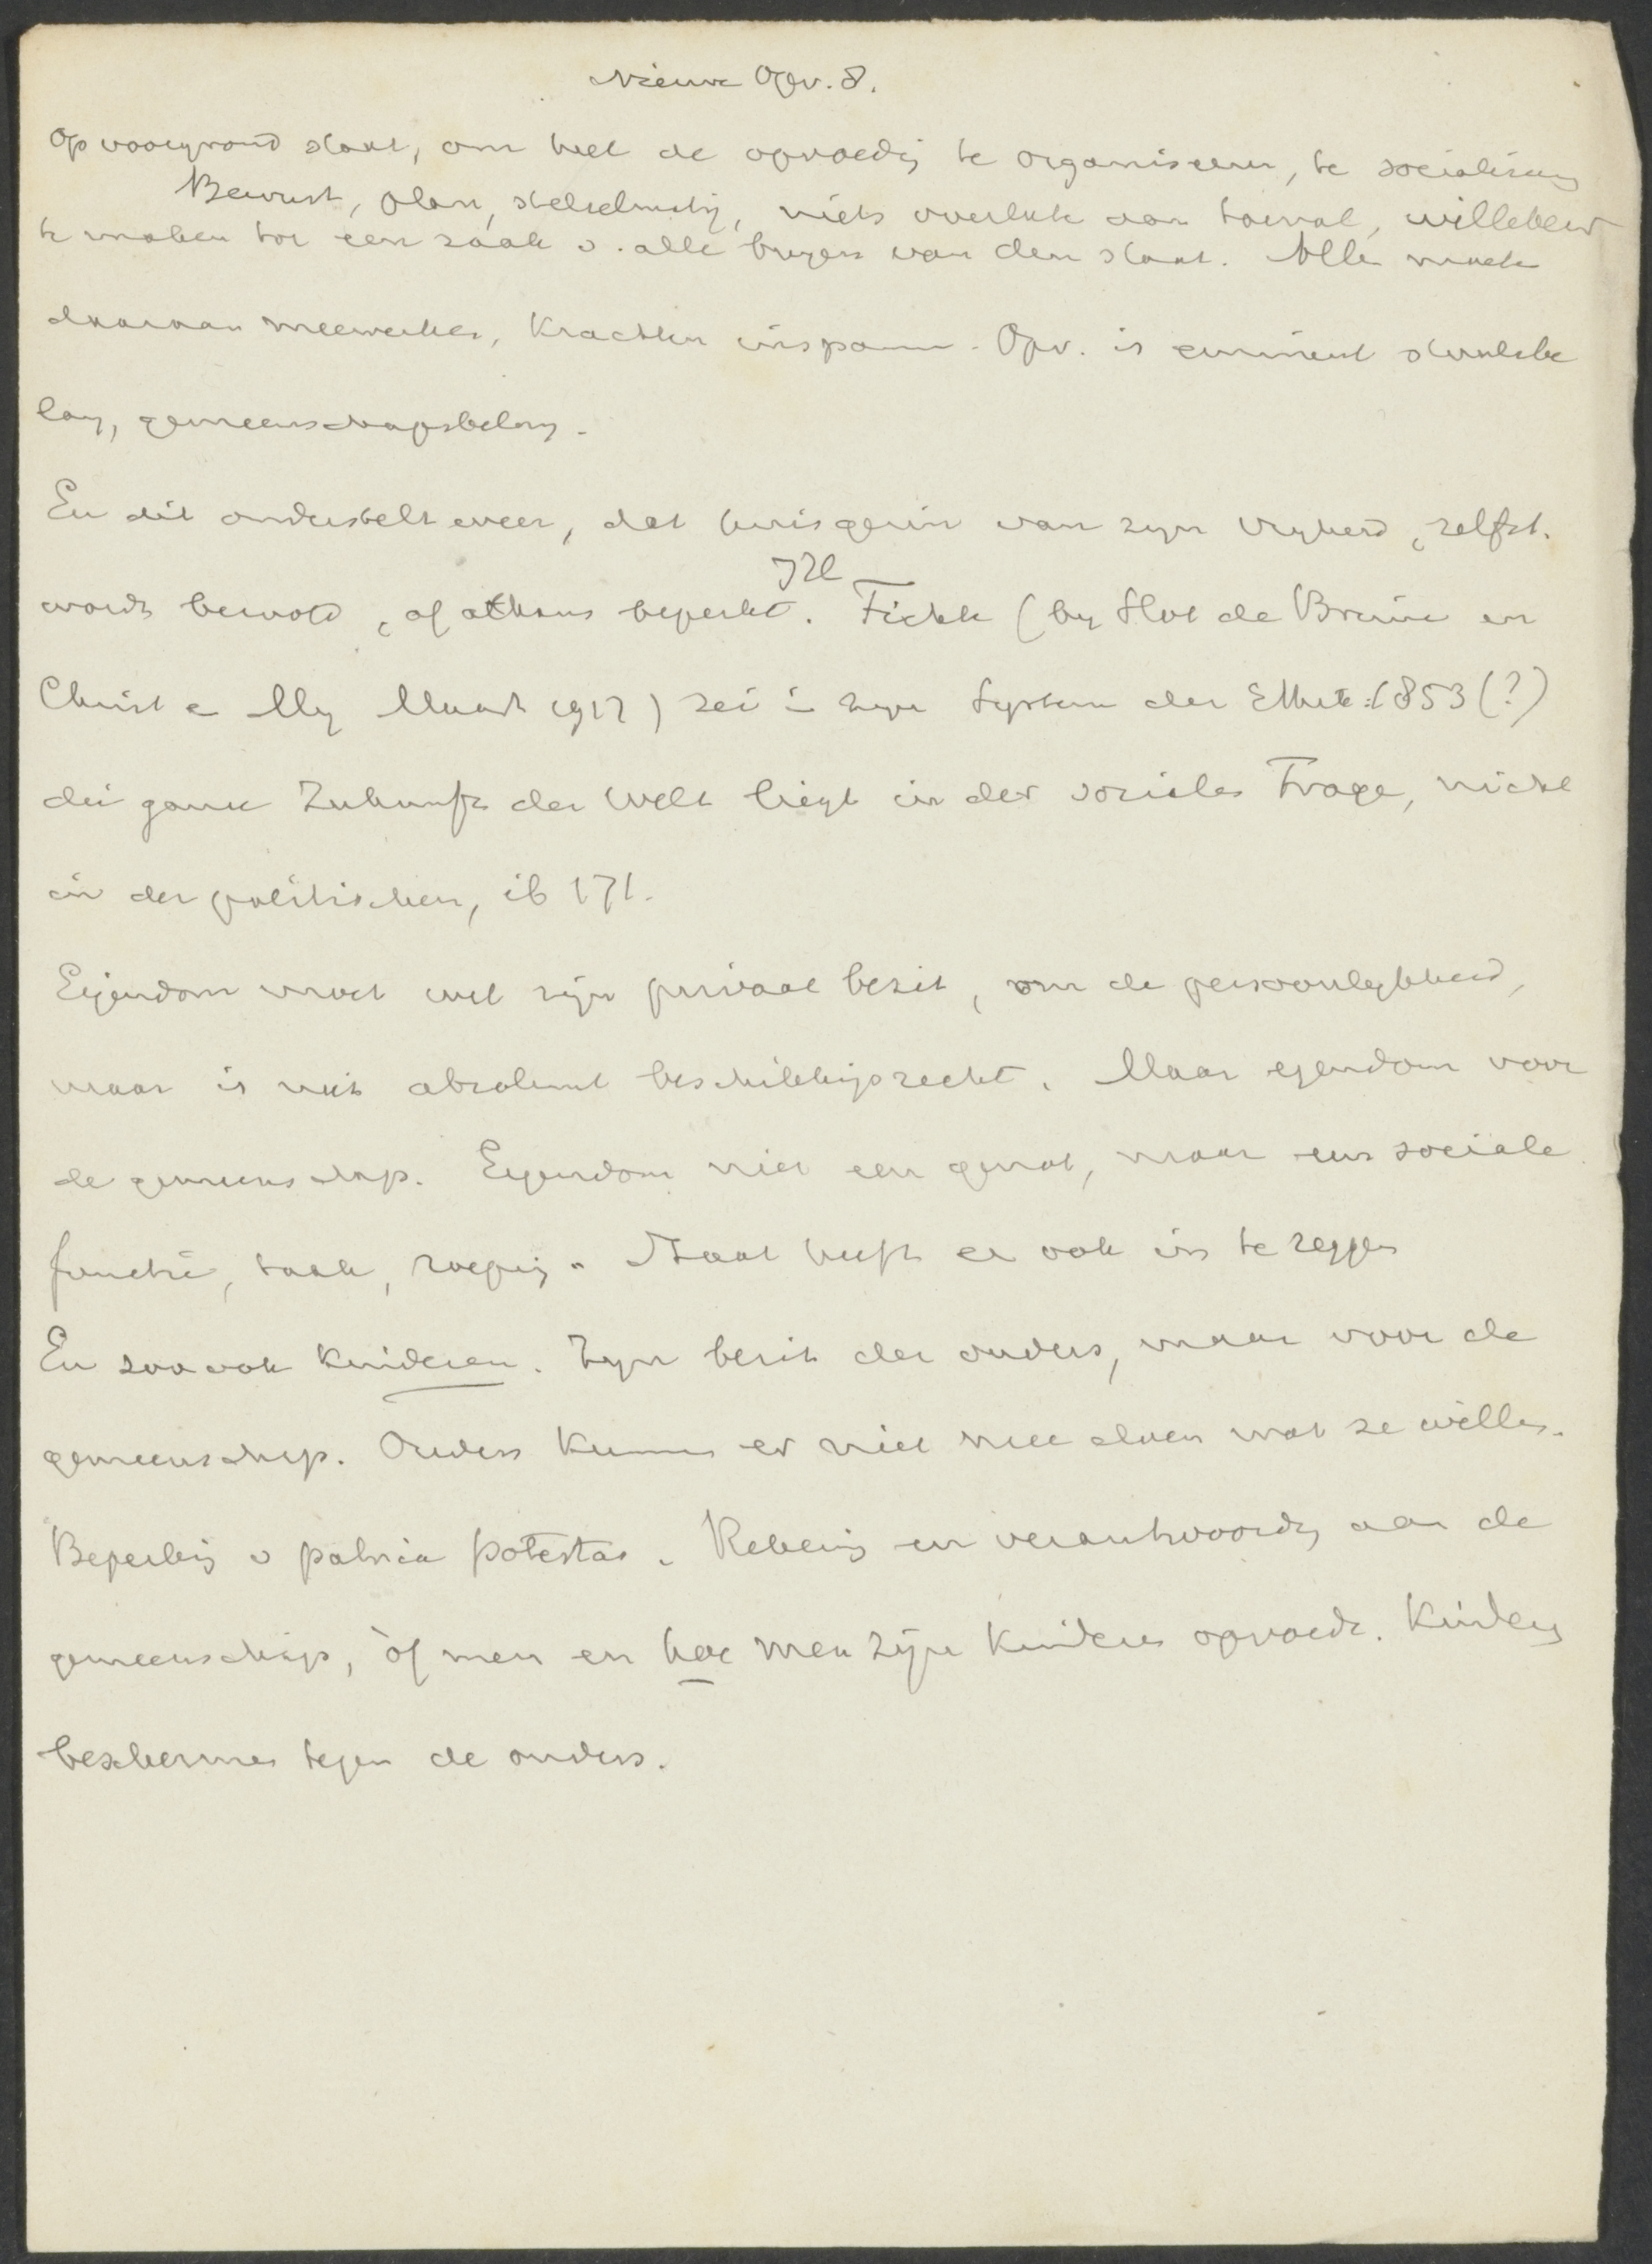 Nieuwe Opv. 8.
Op voorgrond staat, om heel de opvoedg te organiseeren, te socialiseeren
Bewust, plan, stelselmatig, niets overlaten aan toeval, willekeur
te maken tot een zaak v. alle burgers van den staat. Alle moeten
daaraan meewerken, krachten inspannen. Opv. is eminent staatsbe
lang, gemeenschapsbelang.
En dit onderstelt weer, dat huisgezin van zyn vryheid, zelfst.
wordt beroofd, of althans beperkt. JH Fichte (by Slot de Bruine en
Christ e My Maart 1917) zei in zyn System der Ethik: 1853 (?)
die ganze Zukunft der Welt liegt in der socialen Frage, nicht
in der politischen, ib 171.
Eigendom moet wel zijn privaat bezit, om de persoonlykheid,
maar is niet absoluut beschikkingsrecht. Maar eigendom voor
de gemeenschap. Eigendom niet een genot, maar een sociale
functie, taak, roeping. Staat heeft er ook in te zeggen
En zoo ook kinderen. Zyn bezit der ouders, maar voor de
gemeenschap. Ouders kunnen er niet mee doen wat ze willen.
Beperking v patria potestas. Rekening en verantwoordg aan de
gemeenschap, òf men en hoe men zijn kinderen opvoedt. Kinderen
beschermen tegen de ouders.